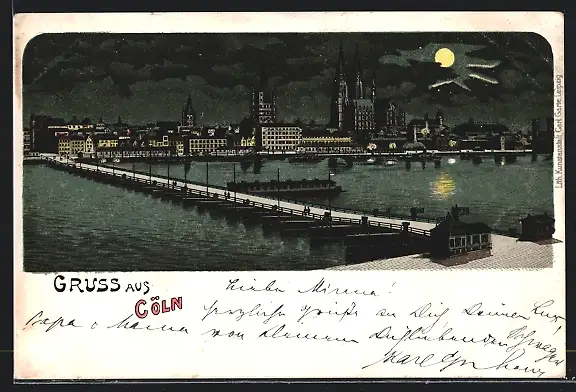 Lith. Kunstanstalt, Carl Garte, Leipzig
GRUSS AUS
CÖLN
Liebe Minna!
herzliche Grüße an Dich Deinen
Papa & Mama von Deinem Dichliebenden Schwager
Karl